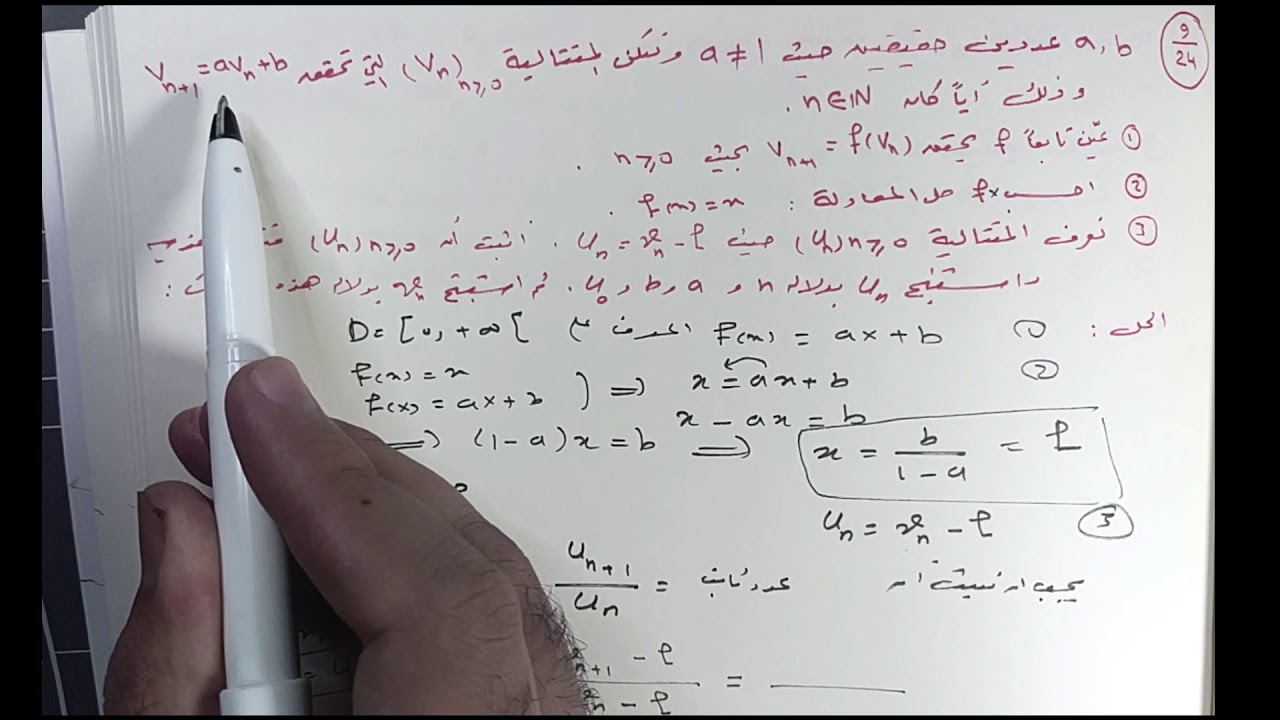 9/24 a, b عددين حقيقيين حيث a ≠ 1 ولتكن المتتالية (Vn)n≥0 التي تحقق Vn+1 = aVn + b
وذلك أياً كان n∈ℕ .
① عيّن تابعاً f يحقق Vn+1 = f(Vn) بحيث n≥0 .
② احسب ℓ حل المعادلة : f(x) = x .
③ نعرف المتتالية (Un)n≥0 حيث Un = Vn - ℓ . أثبت أن (Un)n≥0
واستنتج Un بدلالة n و a و b و U0 . ثم استنتج بدلالة هذه :
الحل : ① f(x) = ax + b المعرف D = [0, +∞[
② f(x) = x
f(x) = ax + b } ⇒ x = ax + b
x - ax = b
⇒ (1 - a)x = b ⇒ x = b/(1 - a) = ℓ
③ Un = Vn - ℓ
يجب ان نثبت ان Un+1/Un = عدد ثابت
n+1 - ℓ / n - ℓ =